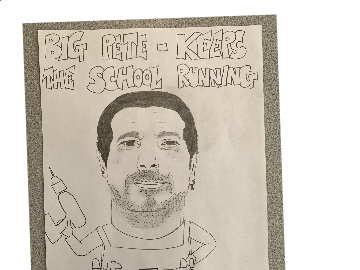 BIG PETE - KEEPS
THE SCHOOL RUNNING